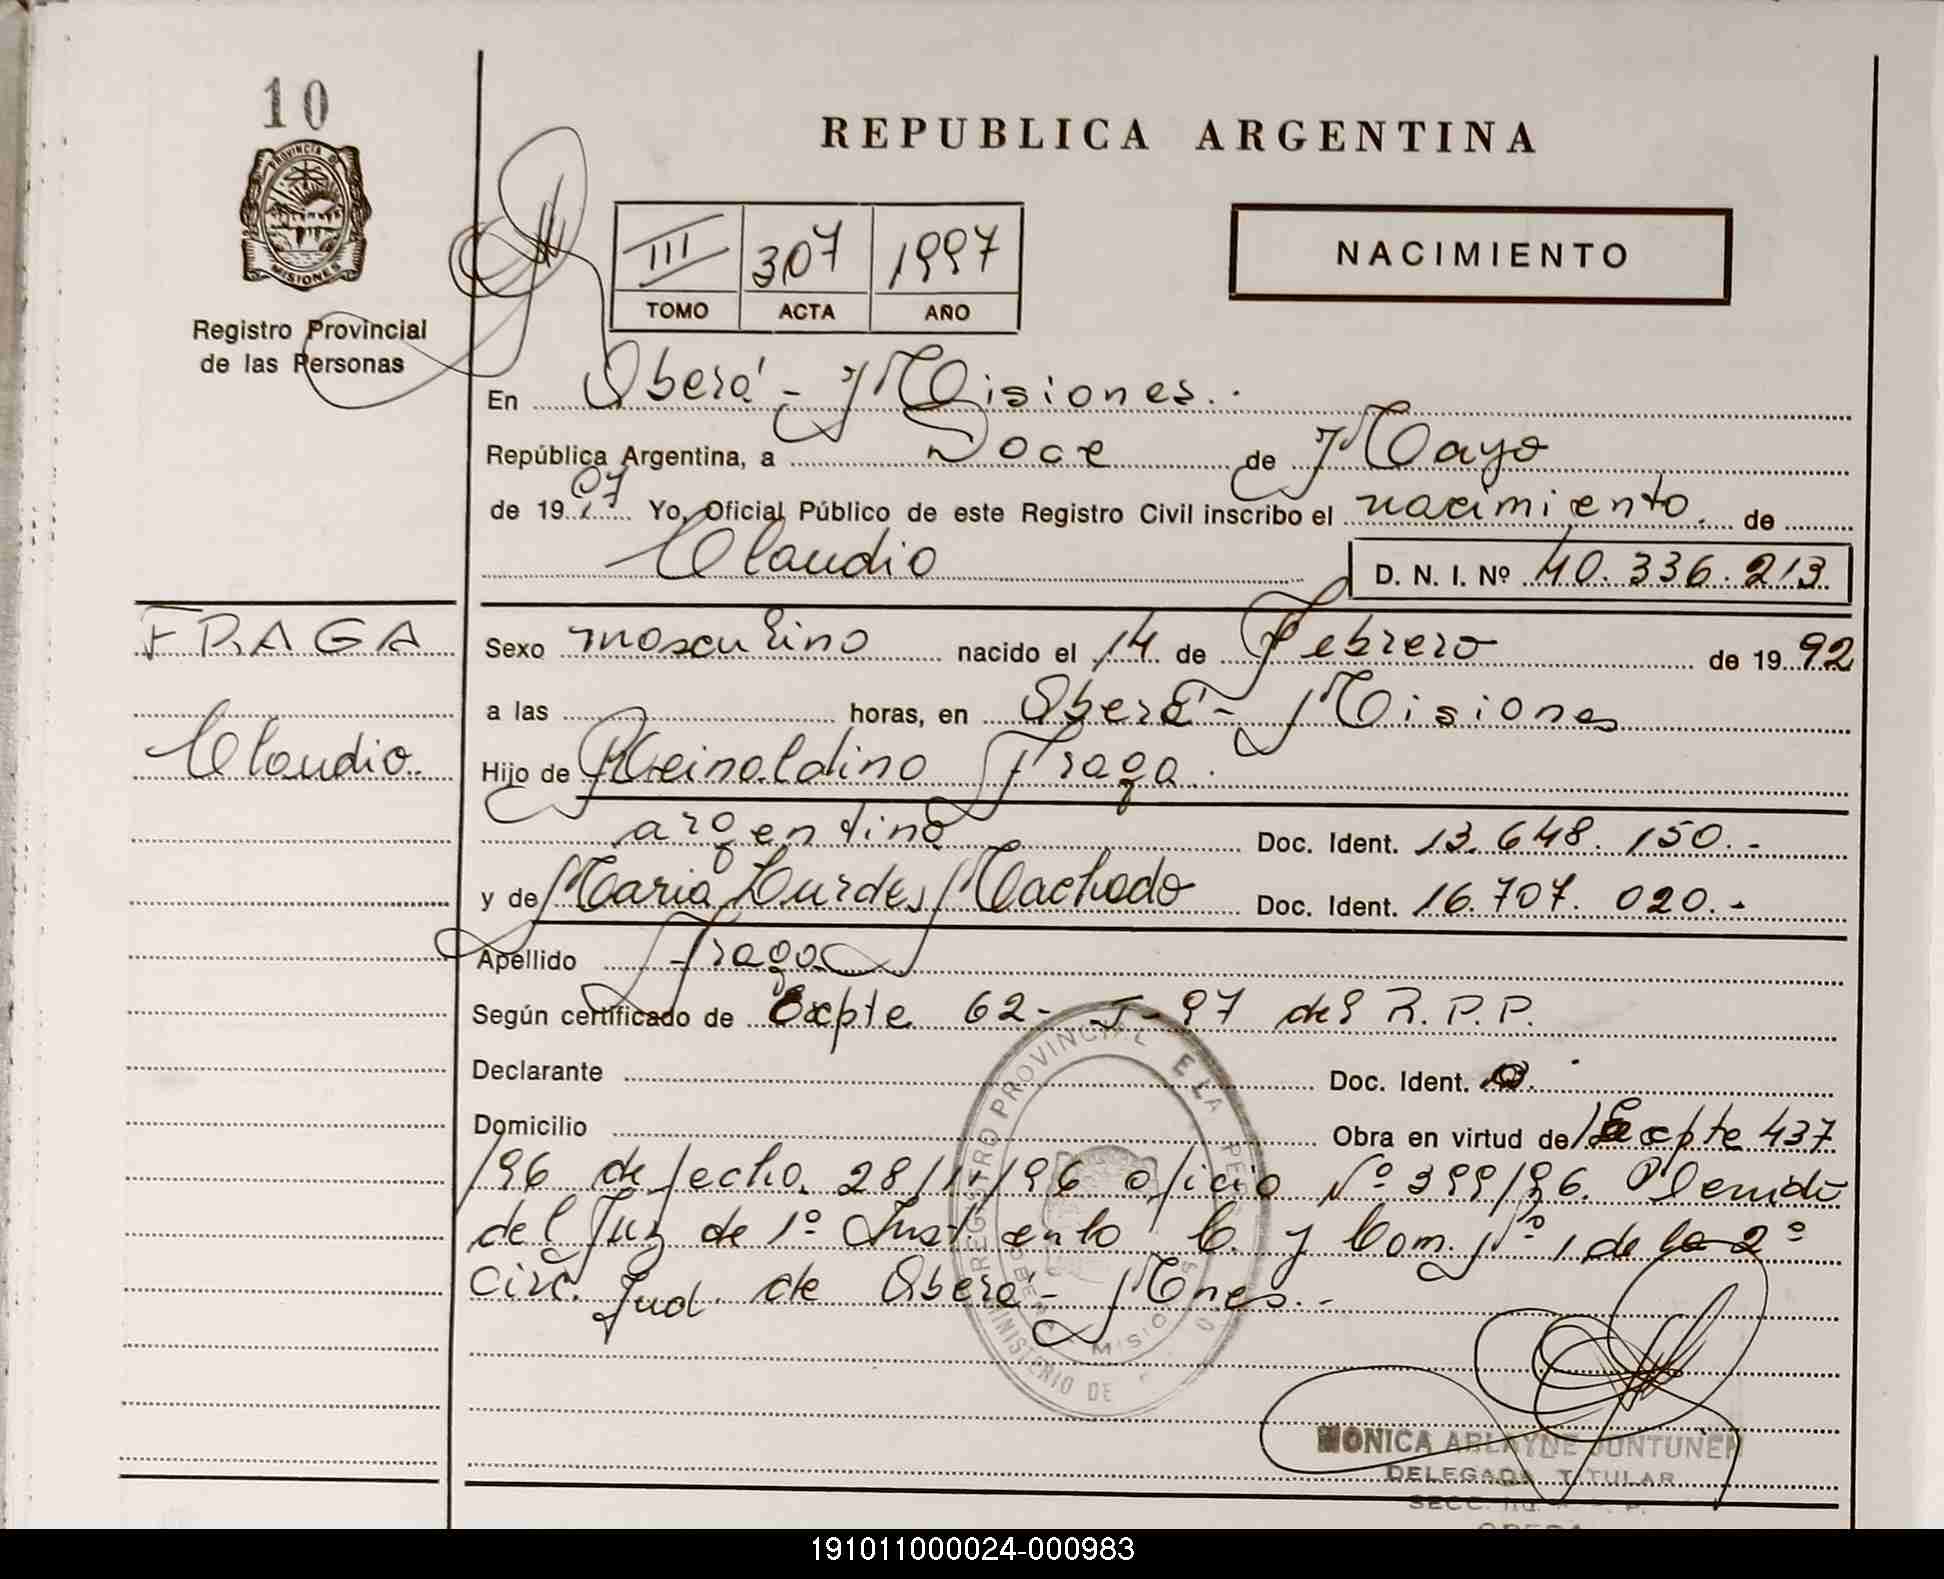 10
PROVINCIA D
MISIONES
Registro Provincial
de las Personas
REPUBLICA ARGENTINA
III 307 1997
TOMO ACTA AÑO
NACIMIENTO
En Oberá - Misiones.
República Argentina, a Doce de Mayo
de 1997 Yo, Oficial Público de este Registro Civil inscribo el nacimiento. de
Claudio D. N. I. Nº 40.336.213
FRAGA
Claudio
Sexo masculino nacido el 14 de Febrero de 1992
a las horas, en Oberá - Misiones
Hijo de Reinoldino Fraga.
argentino Doc. Ident. 13.648.150.-
y de Maria Lurdes Machado Doc. Ident. 16.707.020.-
Apellido Fraga
Según certificado de Expte 62- -97 del R.P.P.
Declarante Doc. Ident.
Domicilio Obra en virtud de Expte 437
/96 de fecha 28/ /96 oficio Nº 399/96.
del Juz de 1º Inst en lo C. y Com. Nº 1 de la 2º
Circ. Jud. de Oberá - Mnes.-
REGISTRO PROVINCIAL E LA PE
MINISTERIO DE
MISIO
MONICA ARLAYNE JUNTUNEN
DELEGADA TITULAR
SECC.
191011000024-000983